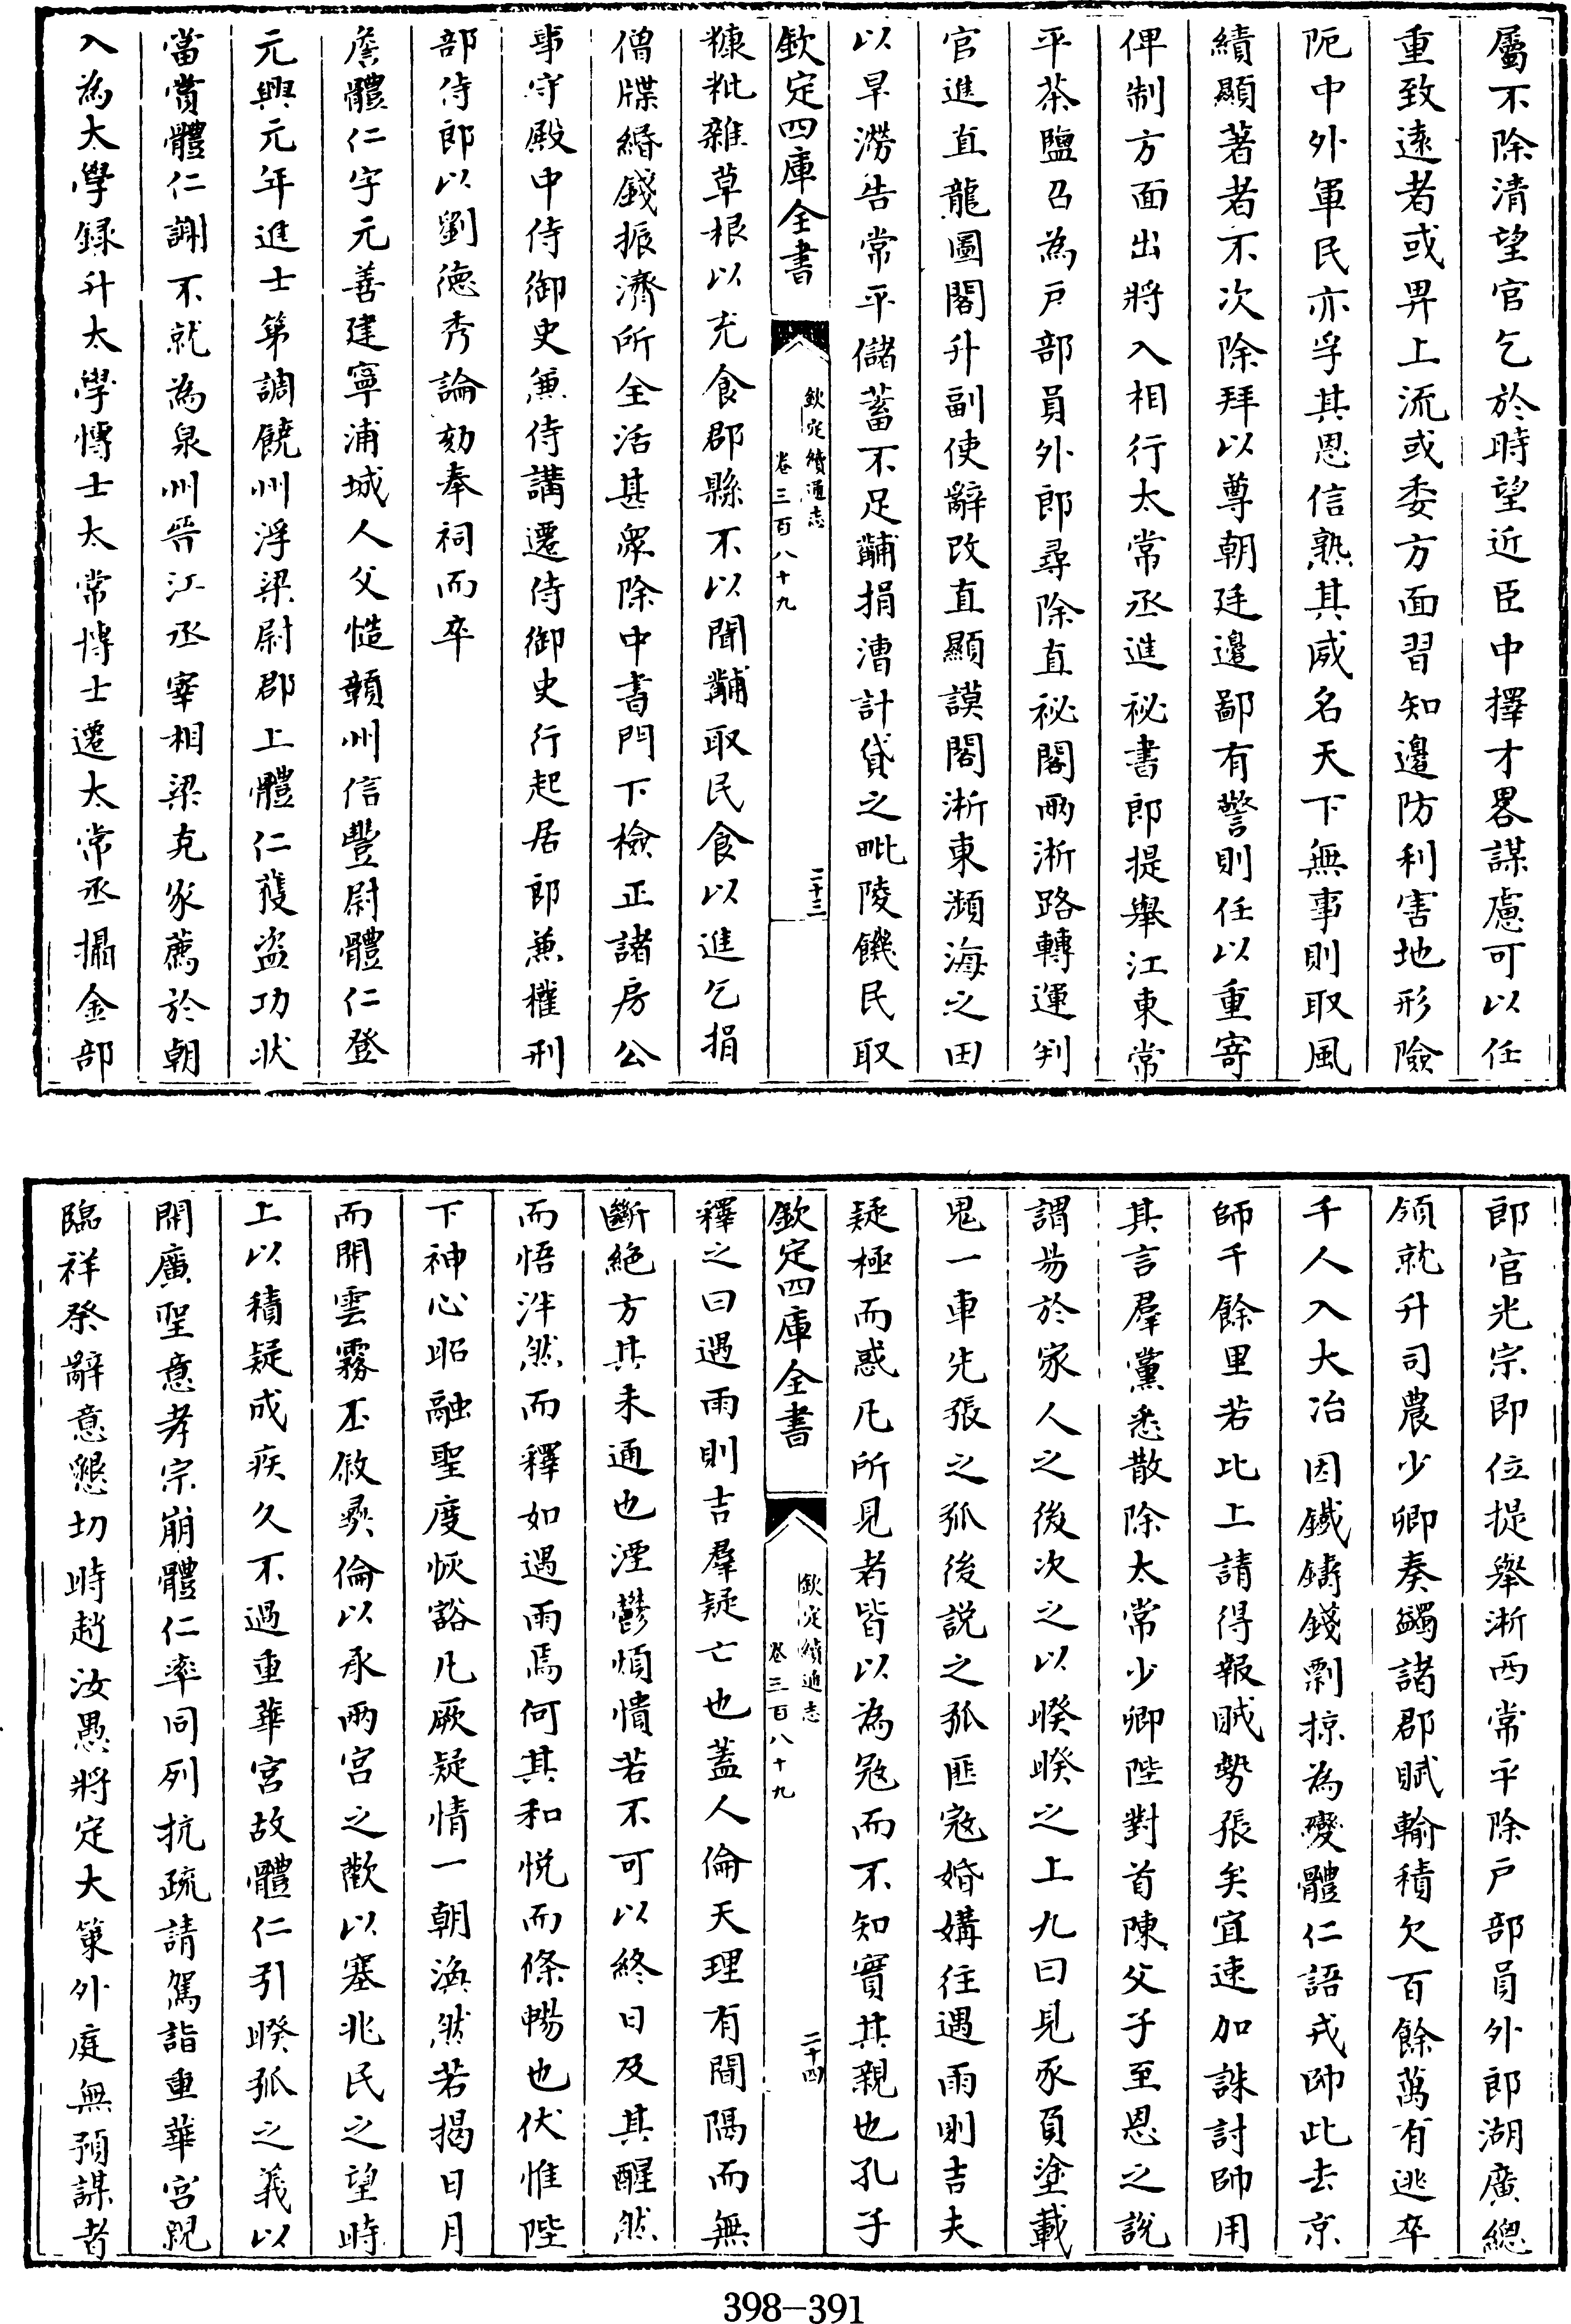 屬不除清望官乞於時望近臣中擇才畧謀慮可以任
重致遠者或畀上流或委方面習知邊防利害地形險
阨中外軍民亦孚其恩信熟其威名天下無事則取風
績顯著者不次除拜以尊朝廷邊鄙有警則任以重寄
俾制方面出將入相行太常丞進祕書郎提舉江東常
平茶鹽召為户部員外郎尋除直祕閣兩淅路轉運判
官進直龍圖閣升副使辭改直顯謨閣淅東瀕海之田
以旱澇告常平儲蓄不足黼捐漕計貸之毗陵饑民取
欽定四庫全書
欽定續通志
卷三百八十九
二十三
糠粃雜草根以充食郡縣不以聞黼取民食以進乞捐
僧牒緡錢振濟所全活甚衆除中書門下檢正諸房公
事守殿中侍御史兼侍講遷侍御史行起居郎兼權刑
部侍郎以劉德秀論劾奉祠而卒
詹體仁字元善建寧浦城人父慥贛州信豐尉體仁登
元興元年進士第調饒州浮梁尉郡上體仁獲盜功狀
當賞體仁謝不就為泉州晉江丞宰相梁克家薦於朝
入為太學録升太學愽士太常博士遷太常丞攝金部
郎官光宗即位提舉淅西常平除户部員外郎湖廣總
領就升司農少卿奏蠲諸郡賦輸積欠百餘萬有逃卒
千人入大冶因鐵鑄錢剽掠為變體仁語戎帥此去京
師千餘里若比上請得報賊勢張矣宜速加誅討帥用
其言羣黨悉散除太常少卿陛對首陳父子至恩之說
謂易於家人之後次之以睽睽之上九曰見豕負塗載
鬼一車先張之弧後説之弧匪寇婚媾往遇雨則吉夫
疑極而惑凡所見者皆以為寇而不知實其親也孔子
欽定四庫全書
欽定續通志
卷三百八十九
二十四
釋之曰遇雨則吉羣疑亡也蓋人倫天理有間隔而無
斷絕方其未通也湮鬱煩憒若不可以終日及其醒然
而悟泮然而釋如遇雨焉何其和悦而條暢也伏惟陛
下神心昭融聖度恢豁凡厥疑情一朝渙然若揭日月
而開雲霧丕敘彛倫以承兩宫之歡以塞兆民之望時
上以積疑成疾久不過重華宫故體仁引睽孤之義以
開廣聖意孝宗崩體仁率同列抗疏請駕詣重華宫親
臨祥祭辭意懇切時趙汝愚將定大策外庭無預謀者
398-391